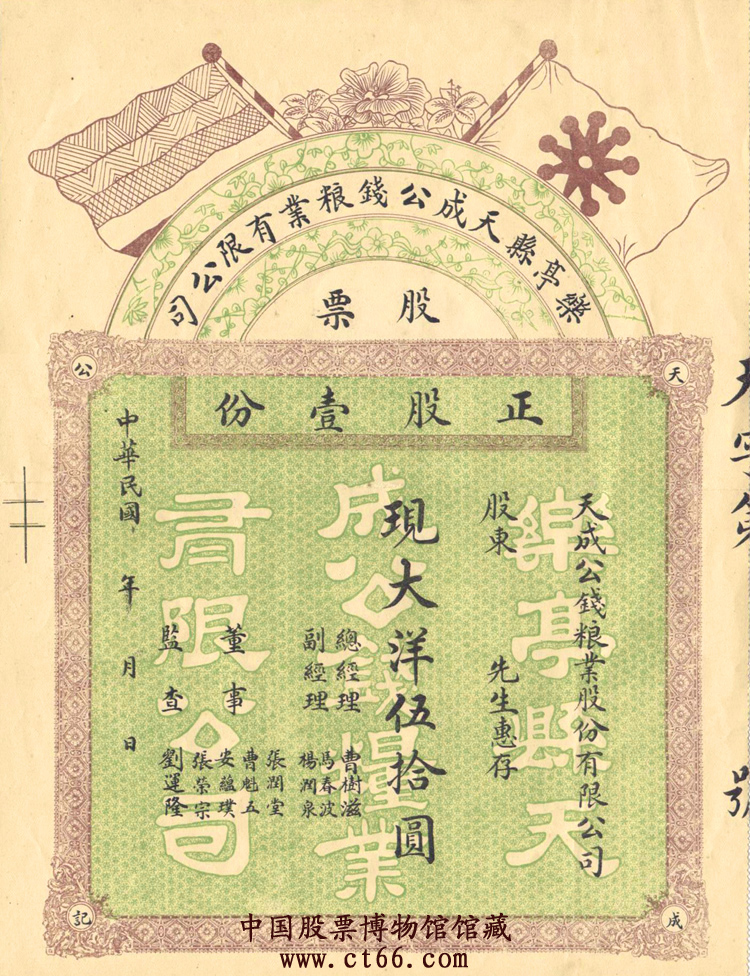 樂亭縣天成公錢粮業有限公司
股票
正股壹份
天
公
成
記
天成公錢粮業股份有限公司
股東
先生惠存
現大洋伍拾圓
總經理 曹樹滋
副經理 馬春波
楊潤泉
董事 張潤堂
曹魁五
安蘊璞
監查 張榮宗
劉運隆
中華民國 年 月 日
樂亭縣天
成公錢糧業
有限公司
天字第
號
中国股票博物馆馆藏
www.ct66.com